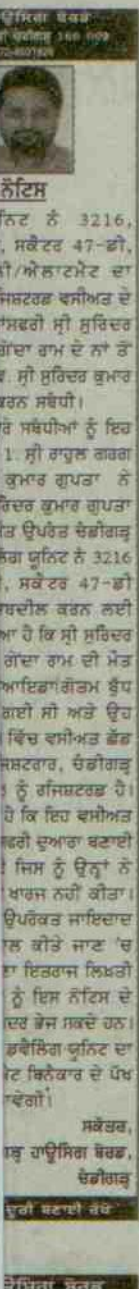 ਊਸਿੰਗ ਬੋਰਡ
ਨੋਟਿਸ
ਨਿਟ ਨੰ 3216,
, ਸਕੈਟਰ 47-ਡੀ,
ਸੀ/ਅਲਾਟਮੈਂਟ ਦਾ
ਜਿਸਟਰਡ ਵਸੀਅਤ ਦੇ
ਂਸਫਰੀ ਸ੍ਰੀ ਸੁਰਿੰਦਰ
ਗੋਂਦਾ ਰਾਮ ਦੇ ਨਾਂ ਤੋਂ
. ਸ੍ਰੀ ਸੁਰਿੰਦਰ ਕੁਮਾਰ
ਕਰਨ ਸਬੰਧੀ।
ਰੇ ਸਬੰਧੀਆਂ ਨੂੰ ਇਹ
1. ਸ੍ਰੀ ਰਾਹੁਲ ਗਰਗ
ਕੁਮਾਰ ਗੁਪਤਾ ਨੇ
ਰਿੰਦਰ ਕੁਮਾਰ ਗੁਪਤਾ
ਤ ਉਪਰੰਤ ਚੰਡੀਗੜ੍ਹ
ਲਿੰਗ ਯੂਨਿਟ ਨੰ 3216
, ਸਕੈਟਰ 47-ਡੀ
ਬਦੀਲ ਕਰਨ ਲਈ
ਆ ਹੈ ਕਿ ਸ੍ਰੀ ਸੁਰਿੰਦਰ
ਗੋਂਦਾ ਰਾਮ ਦੀ ਮੌਤ
ਆਇਡਾ ਗੌਤਮ ਬੁੱਧ
ਗਈ ਸੀ ਅਤੇ ਉਹ
ਵਿੱਚ ਵਸੀਅਤ ਛੱਡ
ਜਿਸਟਰਾਰ, ਚੰਡੀਗੜ੍ਹ
ਨੂੰ ਰਜਿਸਟਰਡ ਹੈ।
ਹੈ ਕਿ ਇਹ ਵਸੀਅਤ
ਸਫਰੀ ਦੁਆਰਾ ਬਣਾਈ
ਜਿਸ ਨੂੰ ਉਨ੍ਹਾਂ ਨੇ
ਖਾਰਜ ਨਹੀਂ ਕੀਤਾ।
ਉਪਰੋਕਤ ਜਾਇਦਾਦ
ਲ ਕੀਤੇ ਜਾਣ 'ਚ
ਣਾ ਇਤਰਾਜ ਲਿਖਤੀ
ਨੂੰ ਇਸ ਨੋਟਿਸ ਦੇ
ਦਰ ਭੇਜ ਸਕਦੇ ਹਨ।
ਡਵੈਲਿੰਗ ਯੂਨਿਟ ਦਾ
ਬਿਨੈਕਾਰ ਦੇ ਪੱਖ
ਾਵੇਗੀ।
ਸਕੱਤਰ,
ਹਾਊਸਿੰਗ ਬੋਰਡ,
ਚੰਡੀਗੜ੍ਹ
ਦੂਰੀ ਬਣਾਈ ਰੱਖੋ